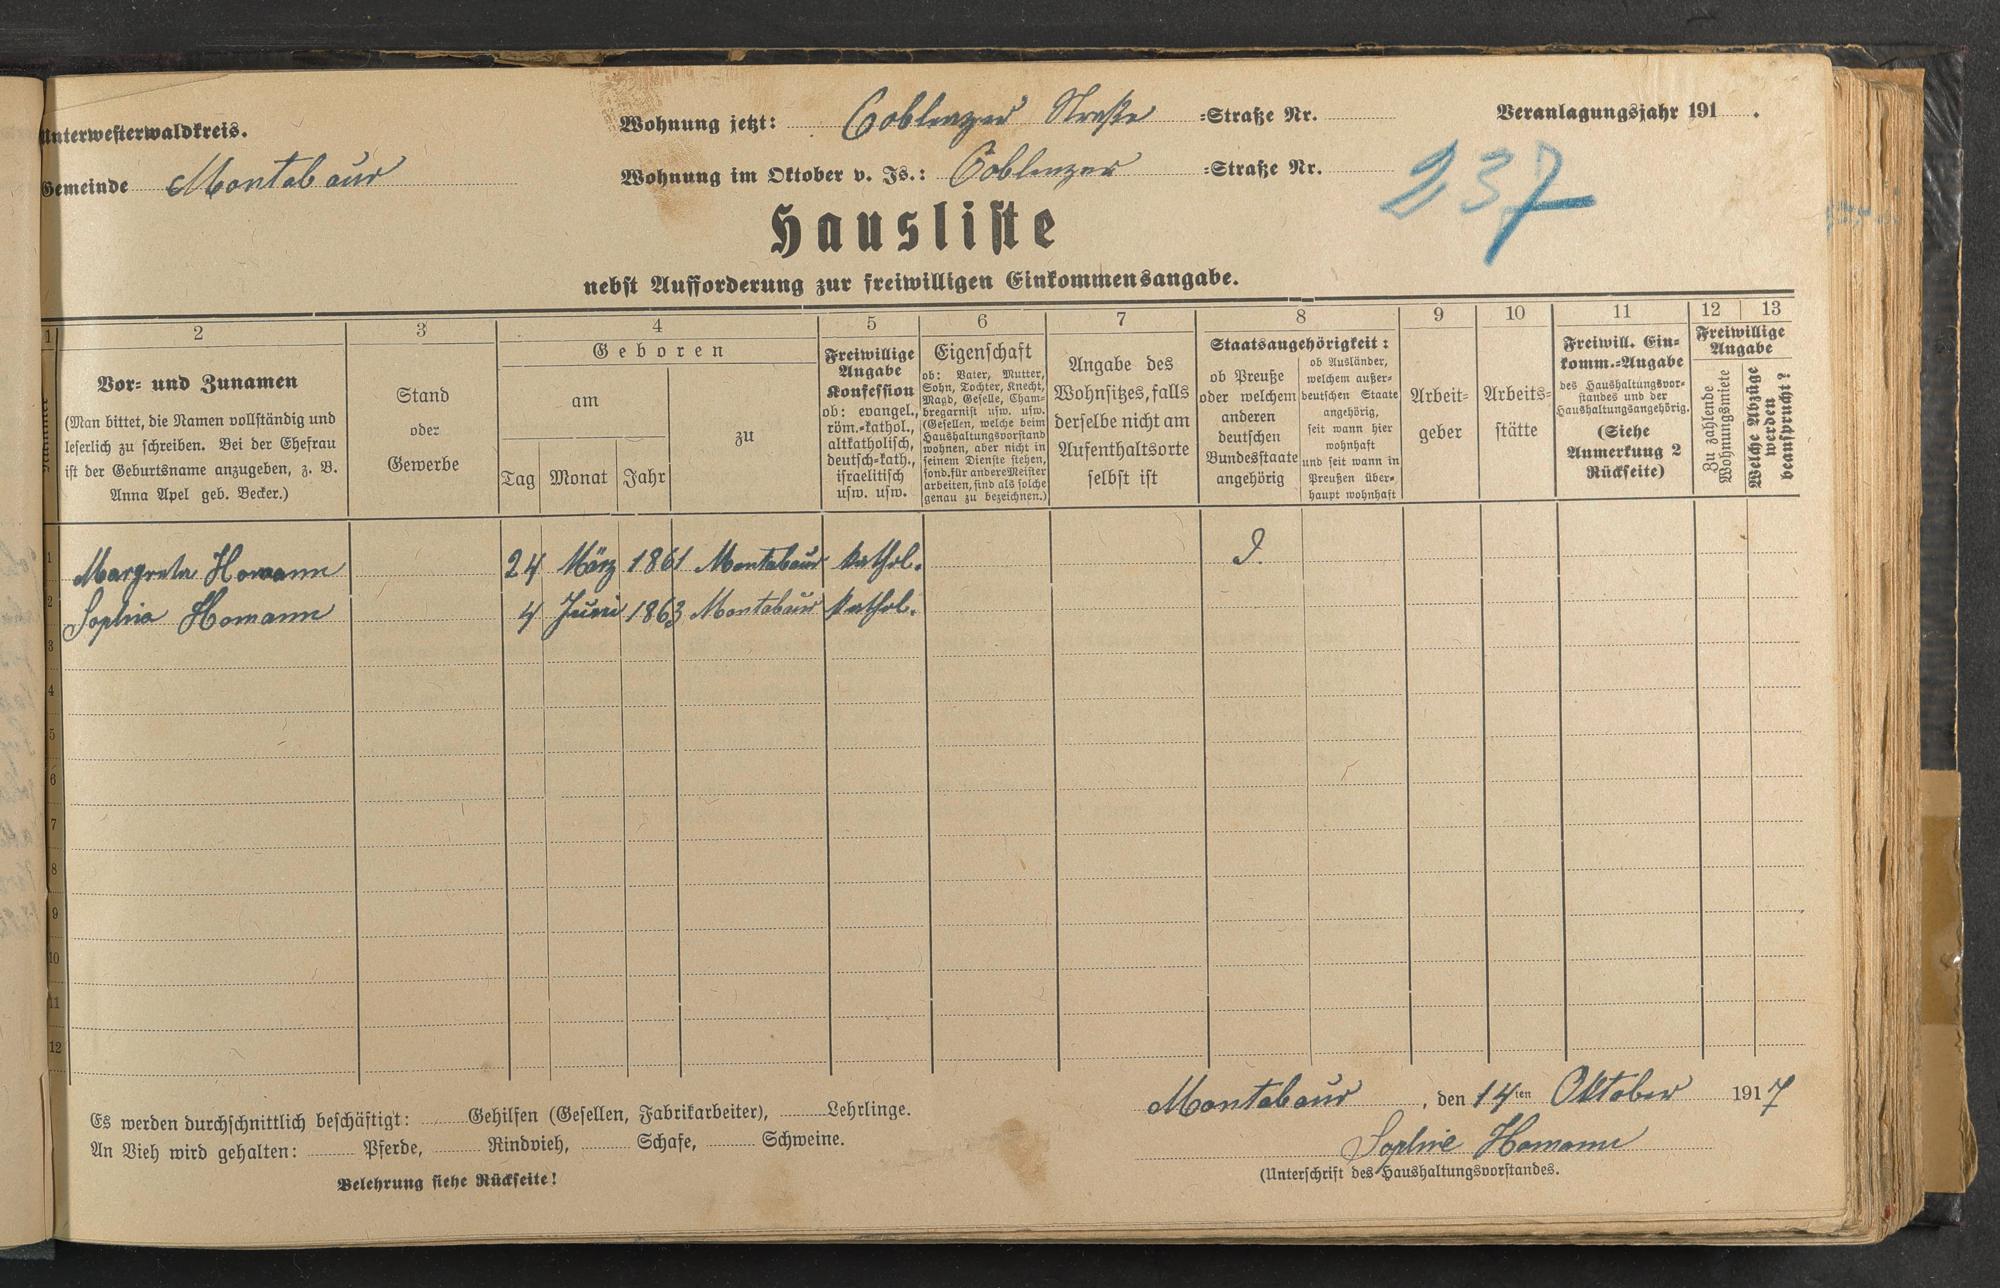 Unterwesterwaldkreis.
Gemeinde Montabaur
Wohnung jetzt: Coblenzer Straße =Straße Nr.
Wohnung im Oktober v. Js.: Coblenzer =Straße Nr.
Veranlagungsjahr 191 .
237
Hausliste
nebst Aufforderung zur freiwilligen Einkommensangabe.
1 2 3 4 5 6 7 8 9 10 11 12 13
Nummer
Vor- und Zunamen
(Man bittet, die Namen vollständig und
leserlich zu schreiben. Bei der Ehefrau
ist der Geburtsname anzugeben, z. B.
Anna Apel geb. Becker.)
Stand
oder
Gewerbe
Geboren
am
Tag Monat Jahr
zu
Freiwillige
Angabe
Konfession
ob: evangel.,
röm.-kathol.,
altkatholisch,
deutsch-kath.,
israelitisch
usw. usw.
Eigenschaft
ob: Vater, Mutter,
Sohn, Tochter, Knecht,
Magd, Geselle, Cham-
bregarnist usw. usw.
(Gesellen, welche beim
Haushaltungsvorstand
wohnen, aber nicht in
seinem Dienste stehen,
sond. für andere Meister
arbeiten, sind als solche
genau zu bezeichnen.)
Angabe des
Wohnsitzes, falls
derselbe nicht am
Aufenthaltsorte
selbst ist
Staatsangehörigkeit:
ob Preuße
oder welchem
anderen
deutschen
Bundesstaate
angehörig
ob Ausländer,
welchem außer-
deutschen Staate
angehörig,
seit wann hier
wohnhaft
und seit wann in
Preußen über-
haupt wohnhaft
Arbeit-
geber
Arbeits-
stätte
Freiwill. Ein-
komm.-Angabe
des Haushaltungsvor-
standes und der
Haushaltungsangehörig.
(Siehe
Anmerkung 2
Rückseite)
Freiwillige
Angabe
Zu zahlende
Wohnungsmiete
Welche Abzüge
werden
beansprucht?
1 Margreta Homann 24 März 1861 Montabaur kathol.
2 Sophie Homann 4 Juni 1863 Montabaur kathol.
3
4
5
6
7
8
9
10
11
12
Es werden durchschnittlich beschäftigt: Gehilfen (Gesellen, Fabrikarbeiter), Lehrlinge.
An Vieh wird gehalten: Pferde, Rindvieh, Schafe, Schweine.
Belehrung siehe Rückseite!
Montabaur, den 14ten Oktober 1917
Sophie Homann
(Unterschrift des Haushaltungsvorstandes.